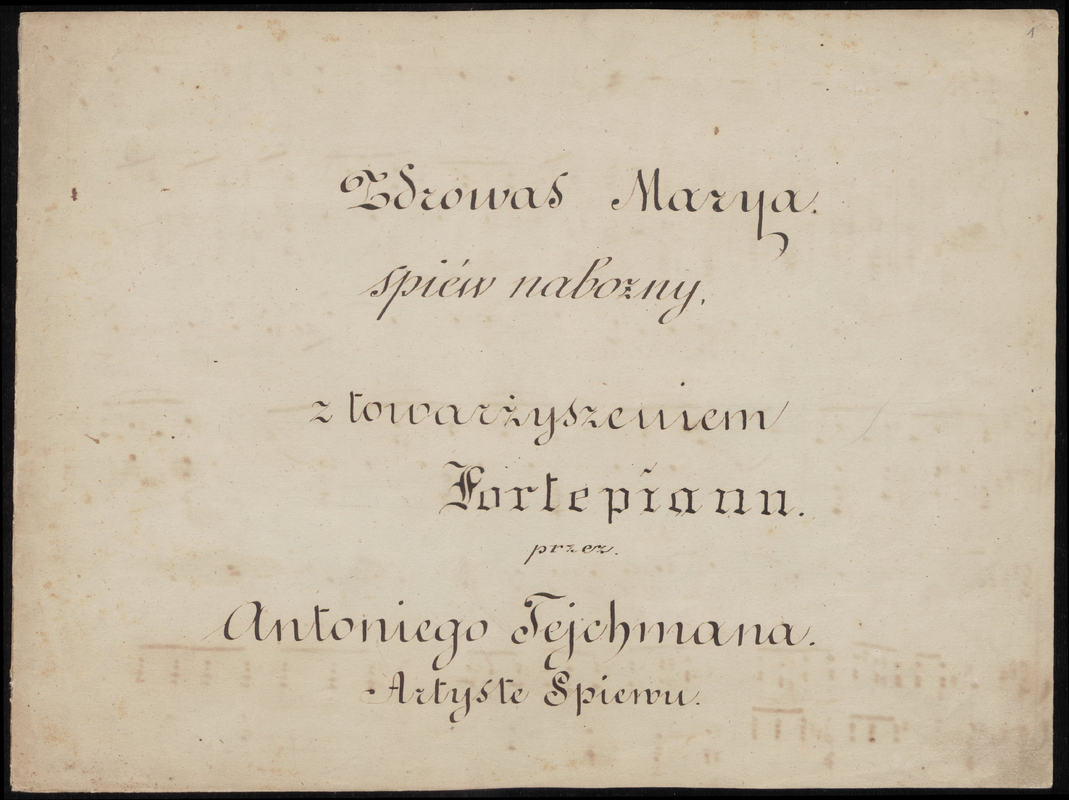 1
Zdrowaś Marya.
spiéw nabozny.
z towarżyszeniem
Fortepianu.
przez.
Antoniego Tejchmana.
Artyste Spiewu.